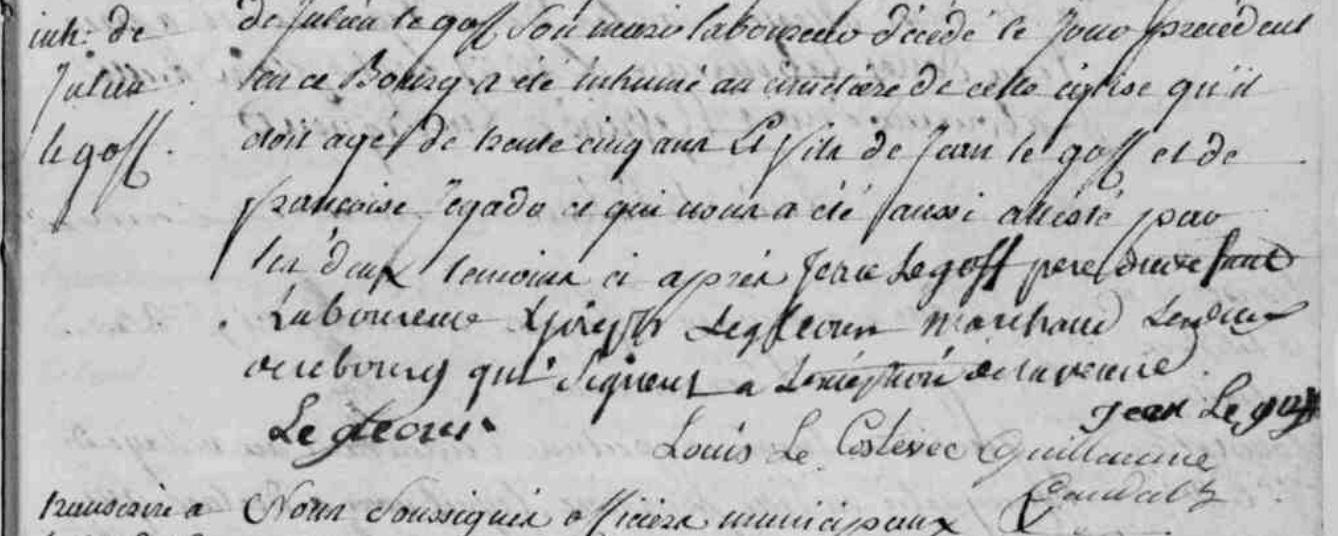 inh: de
Julien
le goff.
de Julien le goff son mari laboureur décédé le Jour précédent
en ce Bourg a été inhumé au cimetière de cette église qu'il
étoit agé de trente cinq ans Le fils de Jean le goff et de
francoise ce qui nous a été aussi attesté par
les deux temoins ci après Jean Legoff pere
Laboureur & joseph Legleoues marchand Les deux
de ce bourg qui signent a L'exception de la veuve.
Jean Le goff
Legleoues
Louis Le Guillaume
transcrire a
Nous soussignés officiers municipaux